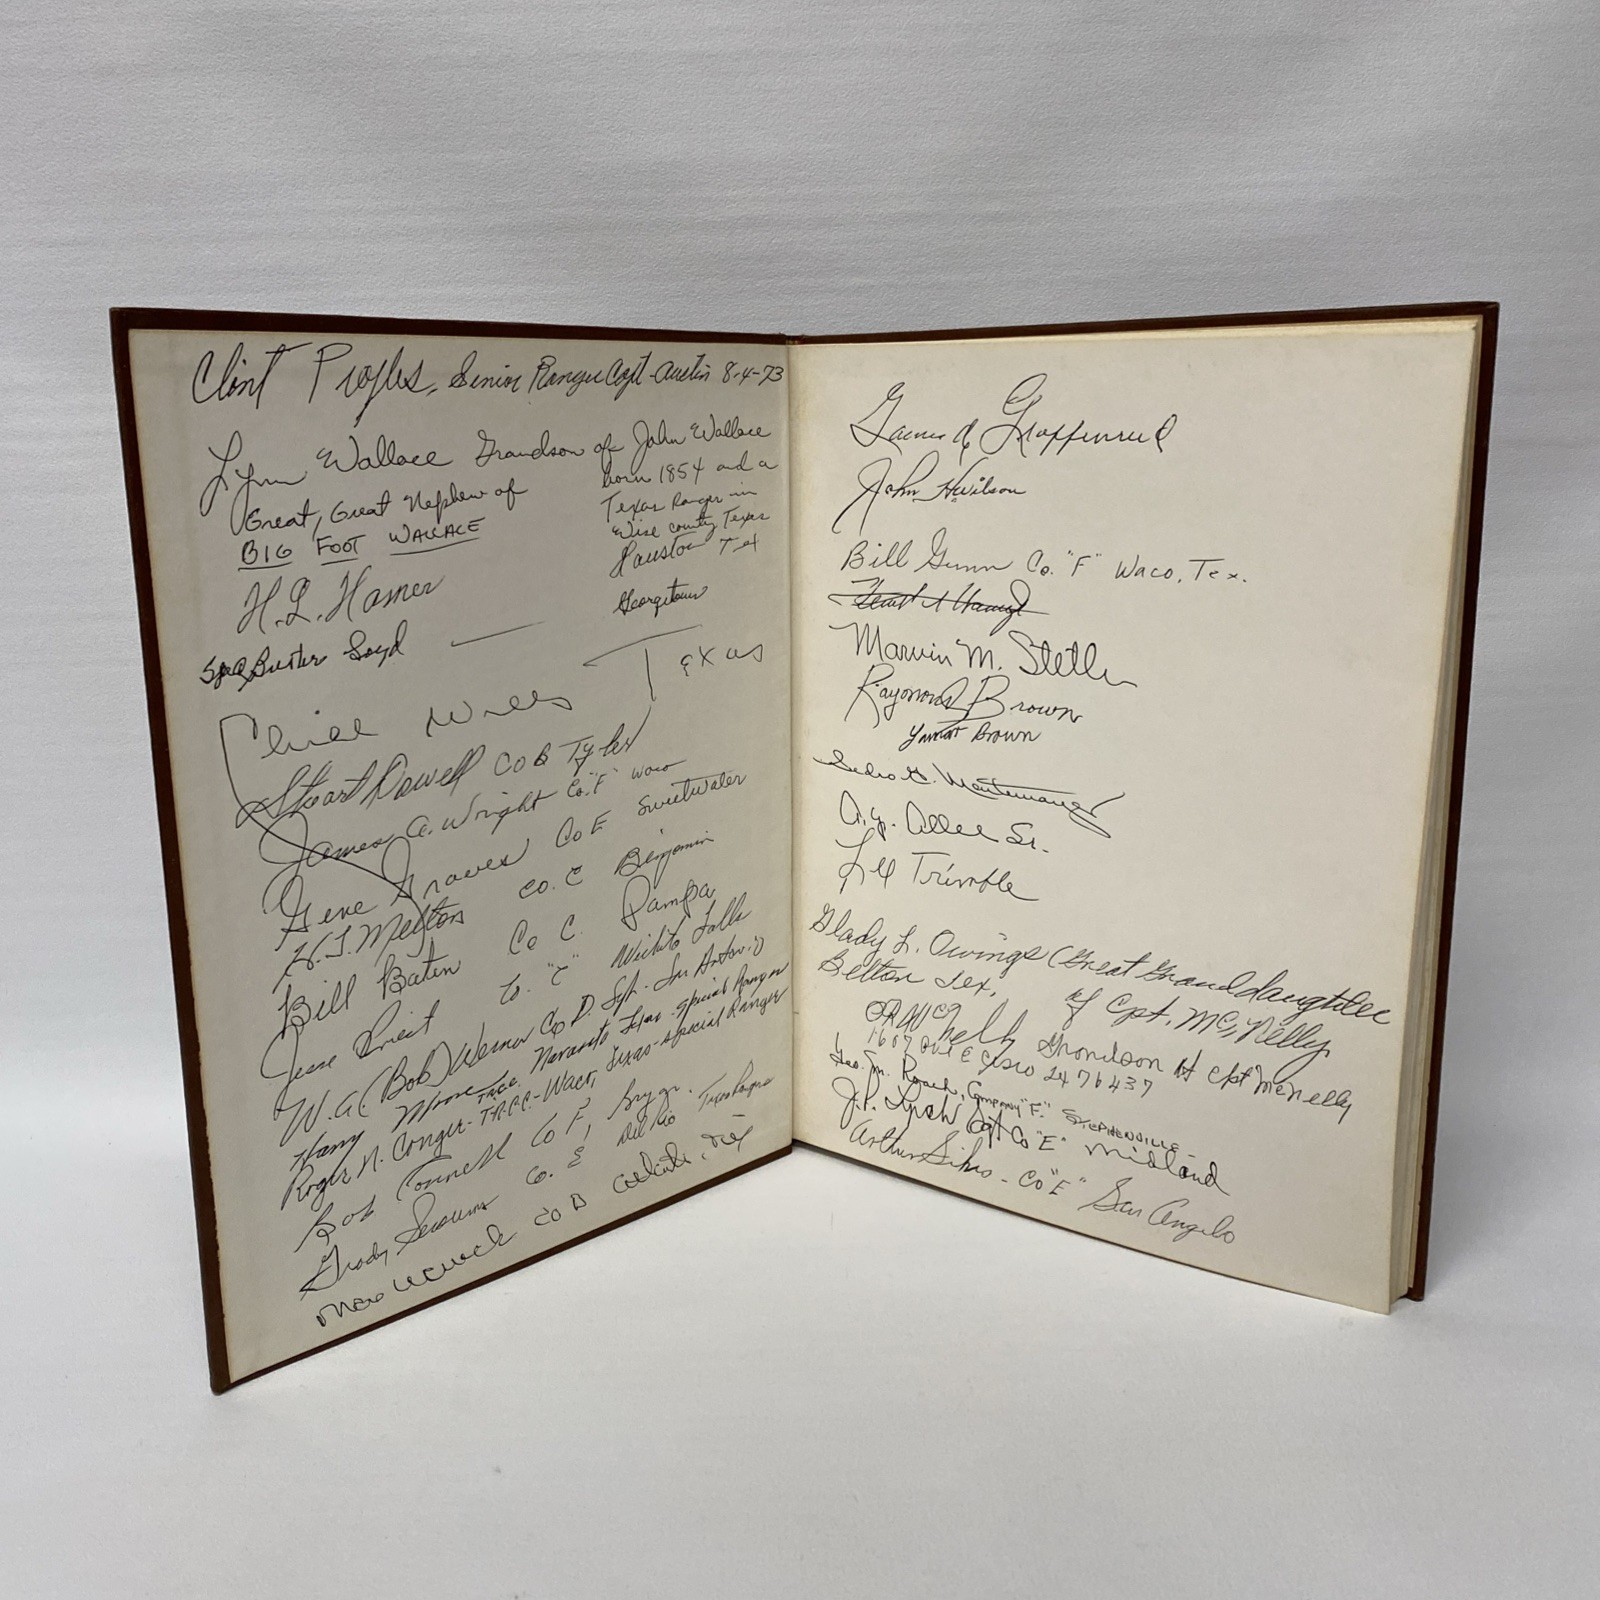 Clint Peoples, Senior Ranger Capt - Austin 8-4-73
Lynn Wallace Grandson of John Wallace
born 1854 and a
Great, Great Nephew of
Texas Ranger in
BIG FOOT WALLACE
Wise county Texas
Houston Tex
H. L. Hamer
Georgetown
Buster
Texas
Chill Wills
Stuart Dowell Co B Tyler
James A. Wright Co. "F" Waco
Gene Graves Co E Sweetwater
H.T. Melton Co. C Benjamin
Bill Baten Co C. Pampa
Jesse Priest Co. "C" Wichita Falls
W. A. (Bob) Werner Co D. Sgt. San Antonio
Harry Moore Navasota Texas - special Ranger
Roger N. Conger - Waco, Texas - special Ranger
Bob Connell Co F, Bryan.
Grady Sessums Co. E Del Rio Texas Ranger
Max Womack Co B Atlanta, Tex
Gaines de Graffenried
John H Wilson
Bill Gunn Co. "F" Waco, Tex.
Marvin M.
Raymond Brown
Brown
A. Y. Allee Sr.
Trimble
Glady L. Owings (Great Granddaughter
Belton Tex. of Capt. McNelly
McNelly Grandson of Capt McNelly
1607 Ave E Cisco 76437
Geo. M. Roach, Company "F." STEPHENVILLE
J.P. Lynch Sgt Co "E" Midland
Arthur Sikes - Co "E" San Angelo